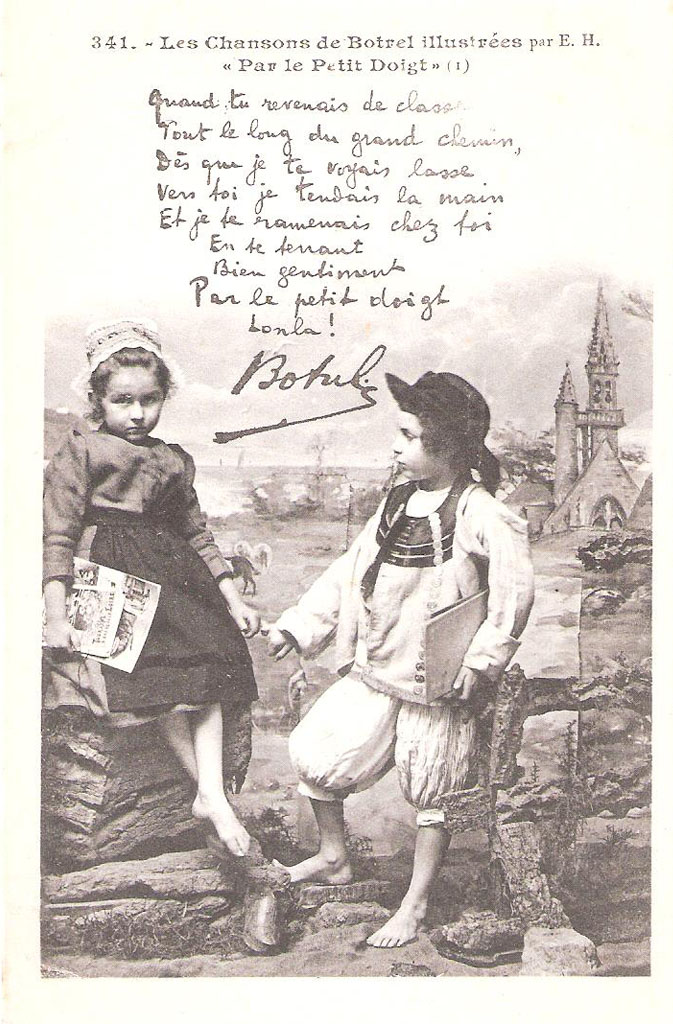 341. - Les Chansons de Botrel illustrées par E. H.
« Par le Petit Doigt » (1)
Quand tu revenais de classe
Tout le long du grand chemin,
Dès que je te voyais lasse
Vers toi je tendais la main
Et je te ramenais chez toi
En te tenant
Bien gentiment
Par le petit doigt
Lonla!
Botrel